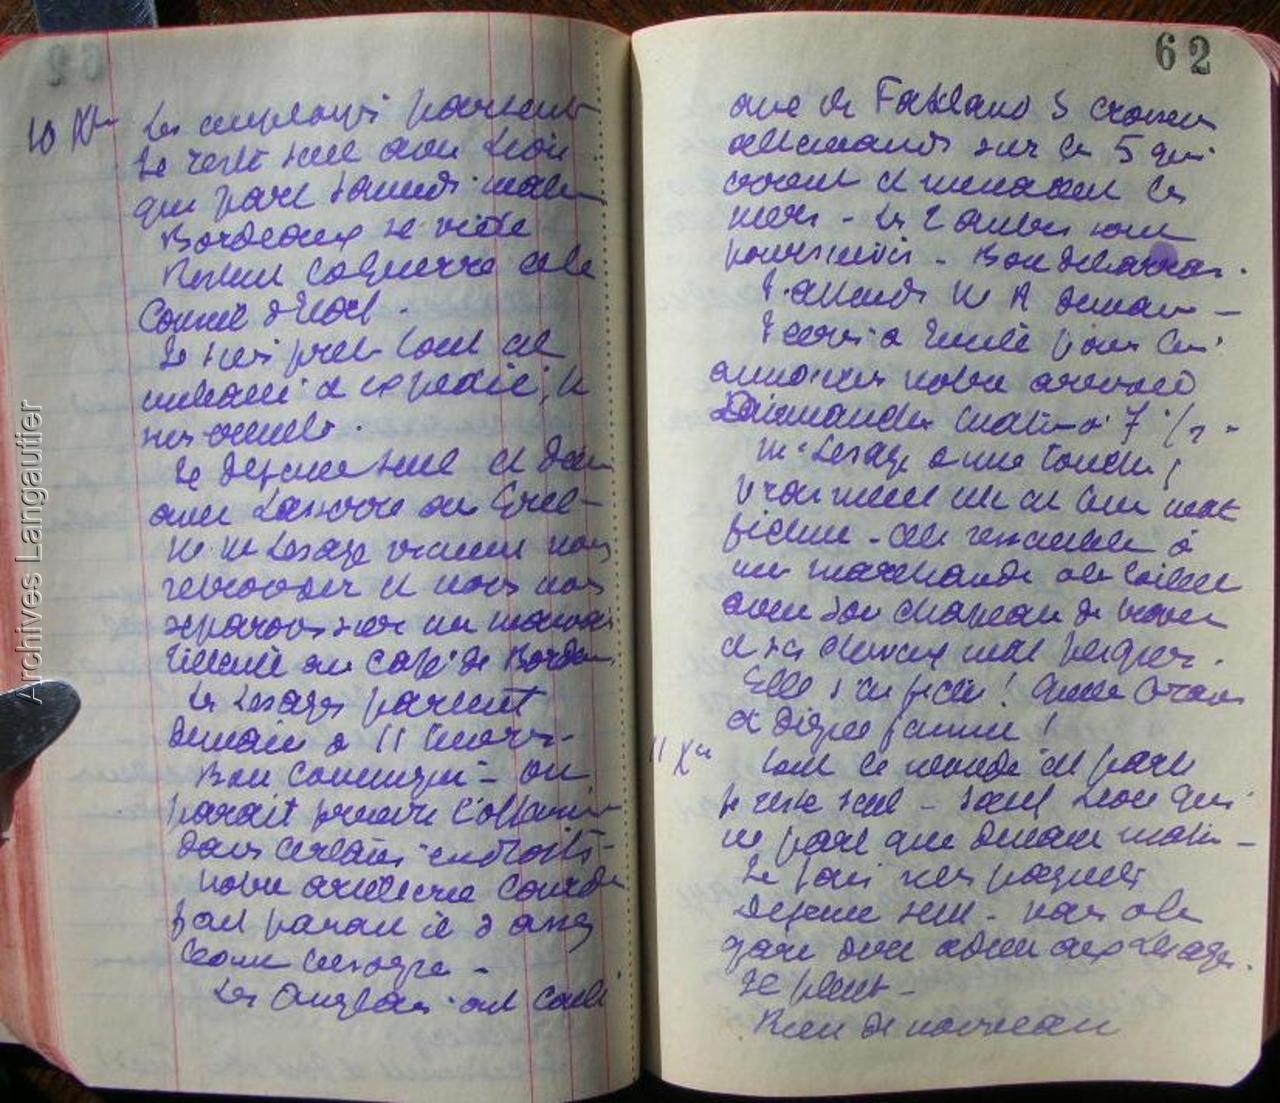 62
10 Xbre Les employés partent
Je reste seul avec Léon
qui part samedi matin
Bordeaux se vide
Revient Laguerre et le
Conseil d'Etat.
Je suis prêt tout est
emballé et expédié, je
suis
Je déjeune seul et dîne
avec Lasserre au
M. Me Lesage viennent nous
retrouver et nous nous
séparons sur un mauvais
tilleul au Café de Bordeaux
Les Lesages partent
demain à 11 heures -
Bon communiqué - on
parait prendre l'offensive
dans certains endroits -
Notre artillerie lourde
fait parait il d'assez
bonne besogne -
Les Anglais ont coulé
62
aux Is Fakland 3 croiseurs
allemands sur les 5 qui
errent et menacent les
mers - les 2 autres sont
poursuivis - Bon débarras.
J'attends M A demain -
J'écris à Emile pour lui
annoncer notre arrivée
Dimanche matin à 7 1/2 -
Me Lesage a une touche !
vraiment elle est bien mal
ficelée - elle ressemble à
une marchande à la toilette
avec son chapeau de travers
et ses cheveux mal peignés.
Elle s'en fiche ! Quelle brave
et digne femme !
11 Xbre Tout le monde est parti
je reste seul - sauf Léon qui
ne part que demain matin -
Je fais mes paquets
Déjeune seul - vais à la
gare dire adieu aux Lesages.
Il pleut -
Rien de nouveau
Archives Langautier